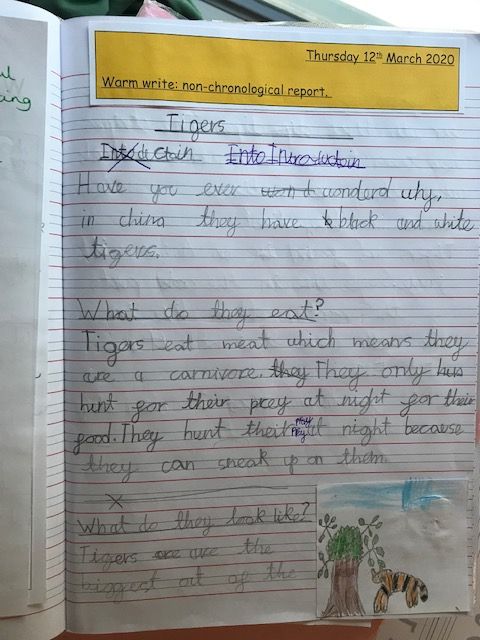 ul
ing
Thursday 12th March 2020
Warm write: non-chronological report.
Tigers
Into Introductoin
Have you ever wondard why,
in china they have black and white
tigers.
What do they eat?
Tigers eat meat which means they
are a carnivore. they They only hun
hunt for their prey at night for their
food. They hunt their prey at night because
they can sneak up on them
What do they look like?
Tigers are are the
biggest out of the